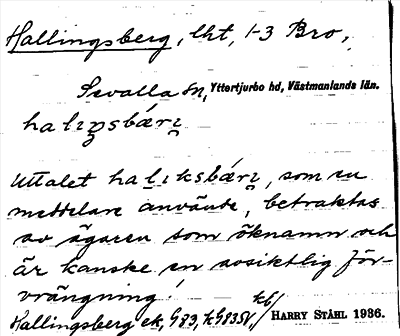 Hallingsberg, lht, 1-3 Bro,
Sevalla sn, Yttertjurbo hd, Västmanlands län.
halıŋsbárı̨
Uttalet halıksbárı̨, som en
meddelare använde, betraktas
av ägaren som öknamn och
är kanske en avsiktlig för-
vrängning!
Hallingsberg ek, G83, kG83SV, HARRY STÅHL 1936.